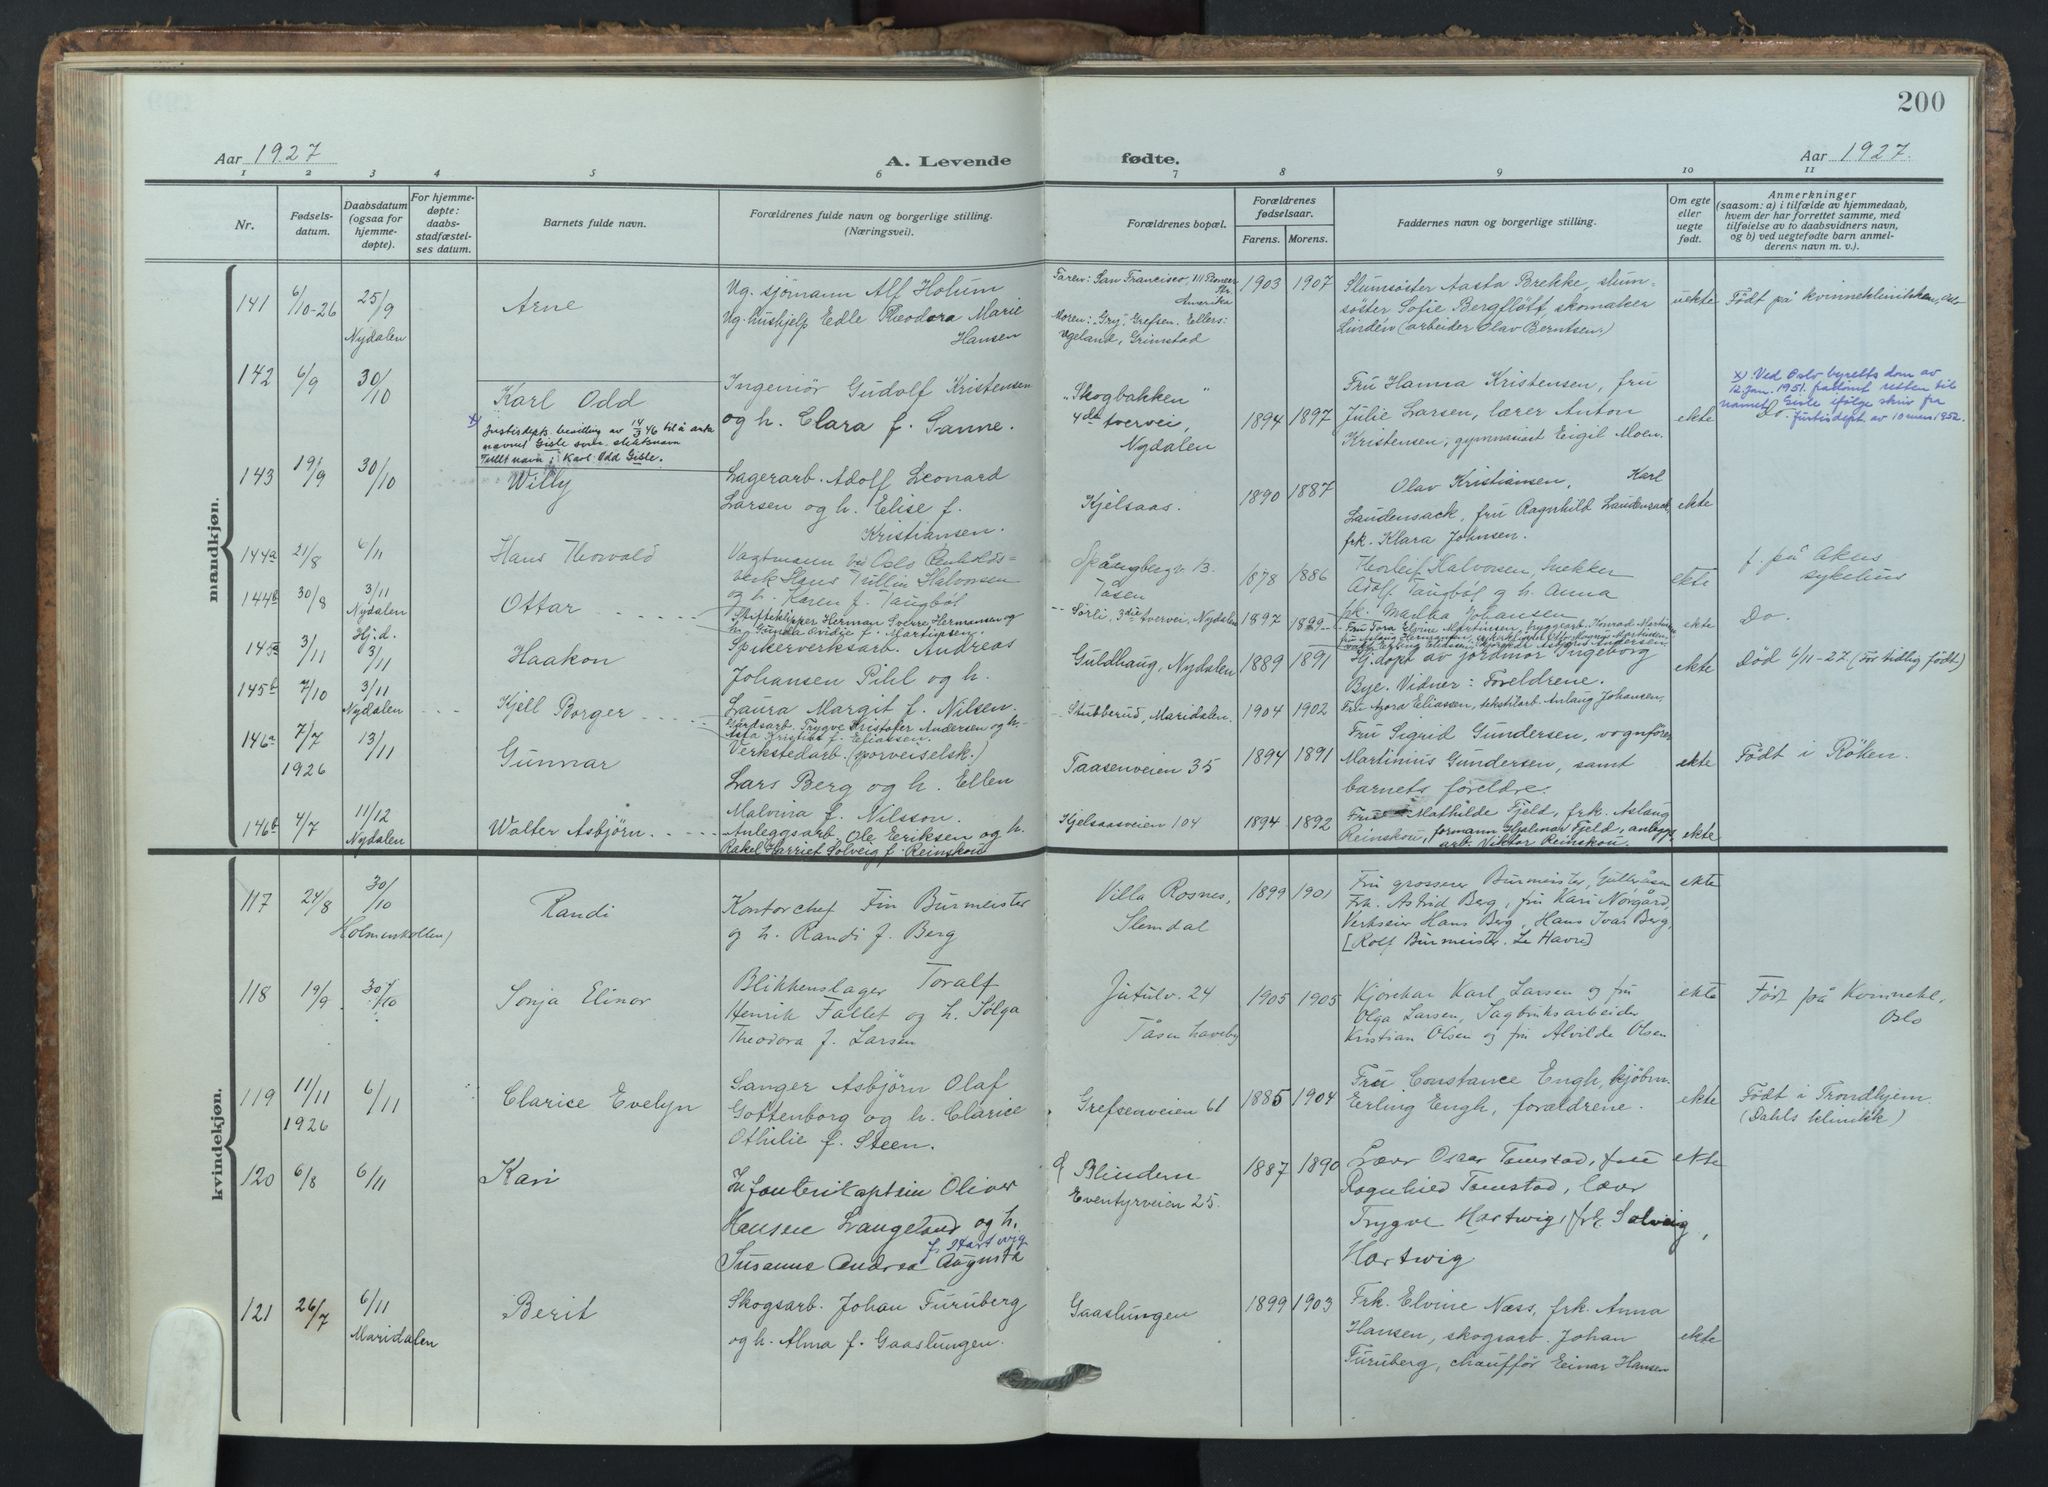 200
Aar 1927
A. Levende
fødte.
Aar 1927.
1 2 3 4 5 6 7 8 9 10 11
Nr.
Fødsels-
datum.
Daabsdatum
(ogsaa for
hjemme-
døpte).
For hjemme-
døpte:
daabs-
stadfæstel-
ses datum.
Barnets fulde navn.
Forældrenes fulde navn og borgerlige stilling.
(Næringsvei).
Forældrenes bopæl.
Forældrenes
fødselsaar.
Farens. Morens.
Faddernes navn og borgerlige stilling.
Om egte
eller
uegte
født.
Anmerkninger
(saasom: a) i tilfælde av hjemmedaab,
hvem der har forrettet samme, med
tilføielse av to daabsvidners navn,
og b) ved uegtefødte barn anmel-
derens navn m. v.).
mandkjøn.
141
6/10-26
25/9
Nydalen
Arne
Ug. sjømann Alf Holum
Ug. hushjelp Edle Theodora Marie
Hansen
Faren: San Francisco, 111 Pioneer
Amerika
Moren: "Gry", Grefsen. Ellers:
Ugeland, Grimstad
1903 1907
Slumsøster Aasta Brekke, slum-
søster Sofie Bergfløtt, skomaker
Lindén (arbeider Olav Berntsen.)
uekte
Født på kvinneklinikken, Oslo
142
6/9
30/10
Karl Odd
x) Justisdepts. bevilling av 14/3 46 til å anta
navnet Gisle som slektsnavn
Fullt navn: Karl Odd Gisle.
Ingeniör Gudolf Kristensen
og h. Clara f. Sanne.
"Skogbakken"
4de tverrvei,
Nydalen
1894 1897
Fru Hanna Kristensen, fru
Julie Larsen, lærer Anton
Kristensen, gymnasiast Eigil Moen.
ekte
Do.
x) Ved Oslo byretts dom av
12 jan. 1951. fradömt retten til
navnet Gisle ifölge skriv fra
justisdept. av 10 mars 1952.
143
19/9
30/10
Willy
Lagerarb. Adolf Leonard
Larsen og h. Elise f.
Kristiansen.
Kjelsaas.
1890 1887
Olav Kristiansen, Karl
Laudensack, fru Ragnhild Laudensack,
frk. Klara Johnsen.
ekte
144a
21/8
6/11
Hans Thorvald
Vagtmann ved Oslo Renholds-
verk Hans Tullin Halvorsen
og h. Karen f. Taugbøl
Spångbergv. 13.
Tåsen
1878 1886
Thorleif Halvorsen, snekker
Adolf Taugbøl og h. Anna
frk. Martha Johansen
ekte
f. på Akers
sykehus
144b
30/8
3/11
Nydalen
Ottar
Stifteklipper Herman Sverre Hermansen og
h. Gunda Ovidie f. Martinsen.
Sørli, 3die tverrvei, Nydalen
1897 1899
Fru Tora Elvine Martinsen, byggearb. Konrad Martinsen
ekte
Do.
145a
3/11
Hj.d.
3/11
Haakon
Spikerverksarb. Andreas
Johansen Pihl og h.
Laura Margit f. Nilsen.
Guldhaug, Nydalen
1889 1891
Hj.döpt av jordmor Ingeborg
Bye. Vidner: Foreldrene.
ekte
Död 6/11-27 (For tidlig födt)
145b
7/10
3/11
Nydalen
Kjell Borger
Gårdsarb. Trygve Kristofer Andersen og h.
Asta Kristine f. Eliassen
Stubberud, Maridalen.
1904 1902
Fru Agora Eliassen, tekstilarb. Anlaug Johansen,
146a
7/7
1926
13/11
Gunnar
Verkstedarb. (sporveiselsk.)
Lars Berg og h. Ellen
Malvina f. Nilsson.
Taasenveien 35
1894 1891
Fru Sigrid Gundersen, vognförer
Martinius Gundersen, samt
barnets foreldre.
ekte
Födt i Röken.
146b
4/7
11/12
Nydalen
Walter Asbjörn
Anleggsarb. Ole Eriksen og h.
Rakel Harriet Solveig f. Reinskou
Kjelsaasveien 104
1894 1892
Fru Mathilde Fjeld, frk. Aslaug
Reinskou, formann Hjalmar Fjeld, anleggs
arb. Viktor Reinskou.
ekte
kvindekjøn.
117
24/8
30/10
Holmenkollen
Randi
Kontorchef Fin Burmeister
og h. Randi f. Berg
Villa Rosnes,
Slemdal
1899 1901
Fru grosserer Burmeister, Gulleråsen
Frk. Astrid Berg, fru Kari Nörgård,
Verkseier Hans Berg, Hans Ivar Berg,
[Rolf Burmeister. Le Havre]
ekte
118
19/9
30/10
Sonja Elinor
Blikkenslager Toralf
Henrik Fallet og h. Solga
Theodora f. Larsen
Jutulv. 24
Tåsen haveby
1905 1905
Kjørekar Karl Larsen og fru
Olga Larsen, Sagbruksarbeider
Kristian Olsen og fru Alvilde Olsen
ekte
Født på Kvinnekl.
Oslo
119
11/11
1926
6/11
Clarice Evelyn
Sanger Asbjörn Olaf
Gottenborg og h. Clarice
Othilie f. Steen.
Grefsenveien 61
1885 1904
Fru Constance Engh, kjöbm.
Eerling Engh, forældrene.
ekte
Födt i Trondhjem.
(Dahls klinikk)
120
6/8
6/11
Kari
Infanterikaptein Oliver
Hansen Langeland og h.
Susanne Andrea Augusta
f. Hartvig
Blindern
Eventyrveien 25.
1887 1890
Lærer Oscar Tomstad, fru
Ragnhild Tomstad, lærer
Trygve Hartwig, frk. Solveig
Hartwig
ekte
121
26/7
6/11
Maridalen
Berit
Skogsarb. Johan Furuberg
og h. Alma f. Gaaslungen.
Gaaslungen
1899 1903
Frk. Elvine Næss, frk. Anna
Hansen, skogsarb. Johan
Furuberg, chaufför Einar Hansen
ekte